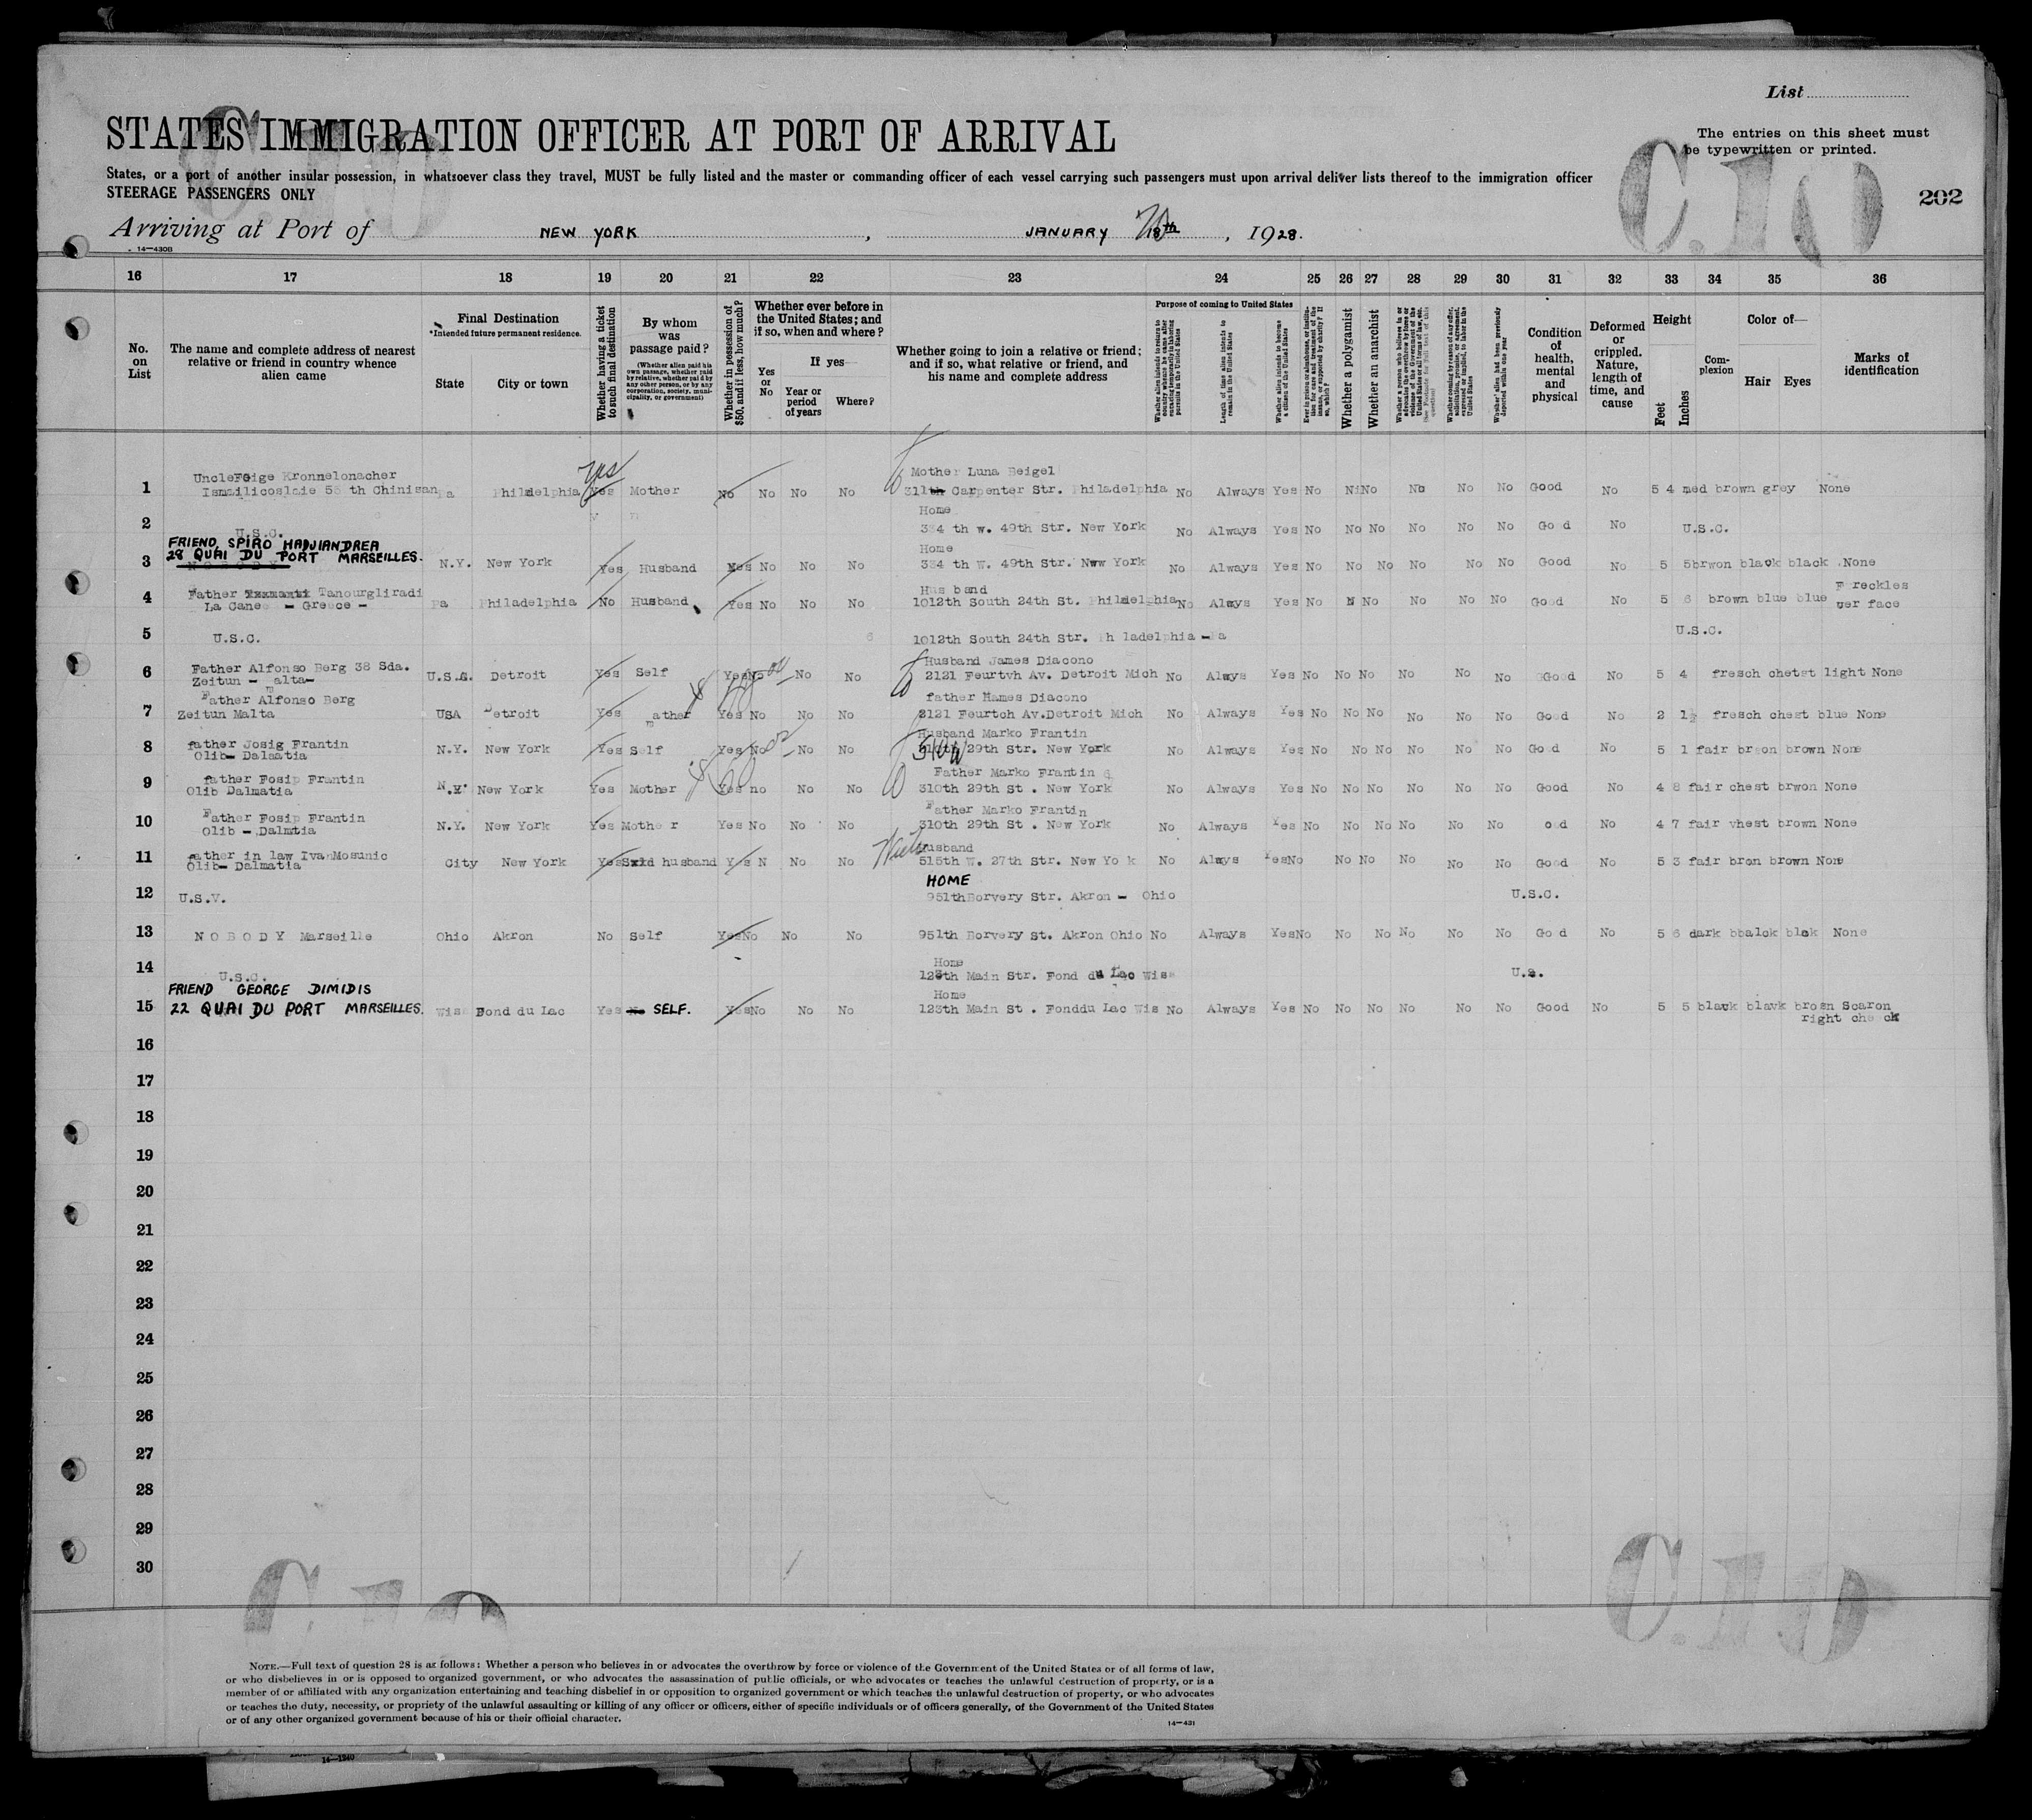 List
STATES IMMIGRATION OFFICER AT PORT OF ARRIVAL
The entries on this sheet must
be typewritten or printed.
States, or a port of another insular possession, in whatsoever class they travel, MUST be fully listed and the master or commanding officer of each vessel carrying such passengers must upon arrival deliver lists thereof to the immigration officer
STEERAGE PASSENGERS ONLY
C.10
C.10
202
Arriving at Port of NEW YORK, JANUARY 20 18th, 1928.
14—430B
16 17 18 19 20 21 22 23 24 25 26 27 28 29 30 31 32 33 34 35 36
No. on List
The name and complete address of nearest relative or friend in country whence alien came
Final Destination
*Intended future permanent residence.
State City or town
Whether having a ticket to such final destination
By whom was passage paid?
(Whether alien paid his own passage, whether paid by relative, whether paid by any other person, or by any corporation, society, municipality, or government)
Whether in possession of $50, and if less, how much?
Whether ever before in the United States; and if so, when and where?
Yes or No
If yes—
Year or period of years
Where?
Whether going to join a relative or friend; and if so, what relative or friend, and his name and complete address
Purpose of coming to United States
Whether alien intends to return to country whence he came after engaging temporarily in laboring pursuits in the United States
Length of time alien intends to remain in the United States
Whether alien intends to become a citizen of the United States
Ever in prison or almshouse, or institution for care and treatment of the insane, or supported by charity? If so, which?
Whether a polygamist
Whether an anarchist
Whether coming by reason of any offer, solicitation, promise, or agreement, expressed or implied, to labor in the United States
Whether alien had been previously deported within one year
Condition of health, mental and physical
Deformed or crippled. Nature, length of time, and cause
Height
Feet Inches
Complexion
Color of—
Hair Eyes
Marks of identification
1 Uncle Foige Kronnelonacher Yes Mother Luna Beigel
Ismailicoslaie 55 th Chinisan Pa Philadelphia Yes Mother No No No No 311th Carpenter Str. Philadelphia No Always Yes No No No No No Good No 5 4 med brown grey None
Home
2 U.S.C. 334 th w. 49th Str. New York No Always Yes No No No No No No Good No U.S.C.
FRIEND SPIRO HADJIANDREA Home
3 28 QUAI DU PORT MARSEILLES. N.Y. New York Yes Husband Yes No No No 334 th W. 49th Str. New York No Always Yes No No No No No No Good No 5 5 brwon black black None
NOBODY
4 Father Tanourgliradi Husband Freckles
La Canee - Greece - Pa Philadelphia No Husband Yes No No No 1012th South 24th St. Philadelphia No Always Yes No N No No No No Good No 5 6 brown blue blue ver face
5 U.S.C. 1012th South 24th Str. Philadelphia - Pa U.S.C.
6 Father Alfonso Berg 38 Sda. Husband James Diacono
Zeitun - malta- U.S.A. Detroit Yes Self Yes No No No 2121 Feurtvh Av. Detroit Mich No Always Yes No No No No No No Good No 5 4 fresch chetst light None
7 Father Alfonso Berg father Hames Diacono
Zeitun Malta USA Detroit Yes mather Yes No No No 2121 Feurtch Av. Detroit Mich No Always Yes No No No No No No Good No 2 1½ fresch chest blue None
8 father Josig Frantin Husband Marko Frantin
Olib- Dalmatia N.Y. New York Yes Self Yes No No No 310 W 29th Str. New York No Always Yes No No No No No No Good No 5 1 fair breon brown None
9 father Fosip Frantin Father Marko Frantin
Olib Dalmatia N.Y. New York Yes Mother Yes no No No 310th 29th St . New York No Always Yes No No No No No No Good No 4 8 fair chest brwon None
10 Father Fosip Frantin Father Marko Frantin
Olib - Dalmtia N.Y. New York Yes Mother Yes No No No 310th 29th St . New York No Always Yes No No No No No No ood No 4 7 fair vhest brown None
11 father in law Ivan Mosunic Husband
Olib- Dalmatia City New York Yes husband Yes N No No 515th W. 27th Str. New Yo k No Always Yes No No No No No No Good No 5 3 fair bron brown None
HOME
12 U.S.V. 951th Borvery Str. Akron - Ohio U.S.C.
13 NOBODY Marseille Ohio Akron No Self Yes No No No 951th Borvery St. Akron Ohio No Always Yes No No No No No No Good No 5 6 dark bbalck blck None
14 U.S.C. Home
123th Main Str. Fond du Lac Wis U.s.
FRIEND GEORGE DIMIDIS Home
15 22 QUAI DU PORT MARSEILLES. Wis Fond du Lac Yes SELF. Yes No No No 123th Main St . Fonddu Lac Wis No Always Yes No No No No No No Good No 5 5 black blavk brown Scaron
right check
16
17
18
19
20
21
22
23
24
25
26
27
28
29
30
C.10
C.10
NOTE.—Full text of question 28 is as follows: Whether a person who believes in or advocates the overthrow by force or violence of the Government of the United States or of all forms of law,
or who disbelieves in or is opposed to organized government, or who advocates the assassination of public officials, or who advocates or teaches the unlawful destruction of property, or is a
member of or affiliated with any organization entertaining and teaching disbelief in or opposition to organized government or which teaches the unlawful destruction of property, or who advocates
or teaches the duty, necessity, or propriety of the unlawful assaulting or killing of any officer or officers, either of specific individuals or of officers generally, of the Government of the United States
or of any other organized government because of his or their official character.
14—431
14—1240